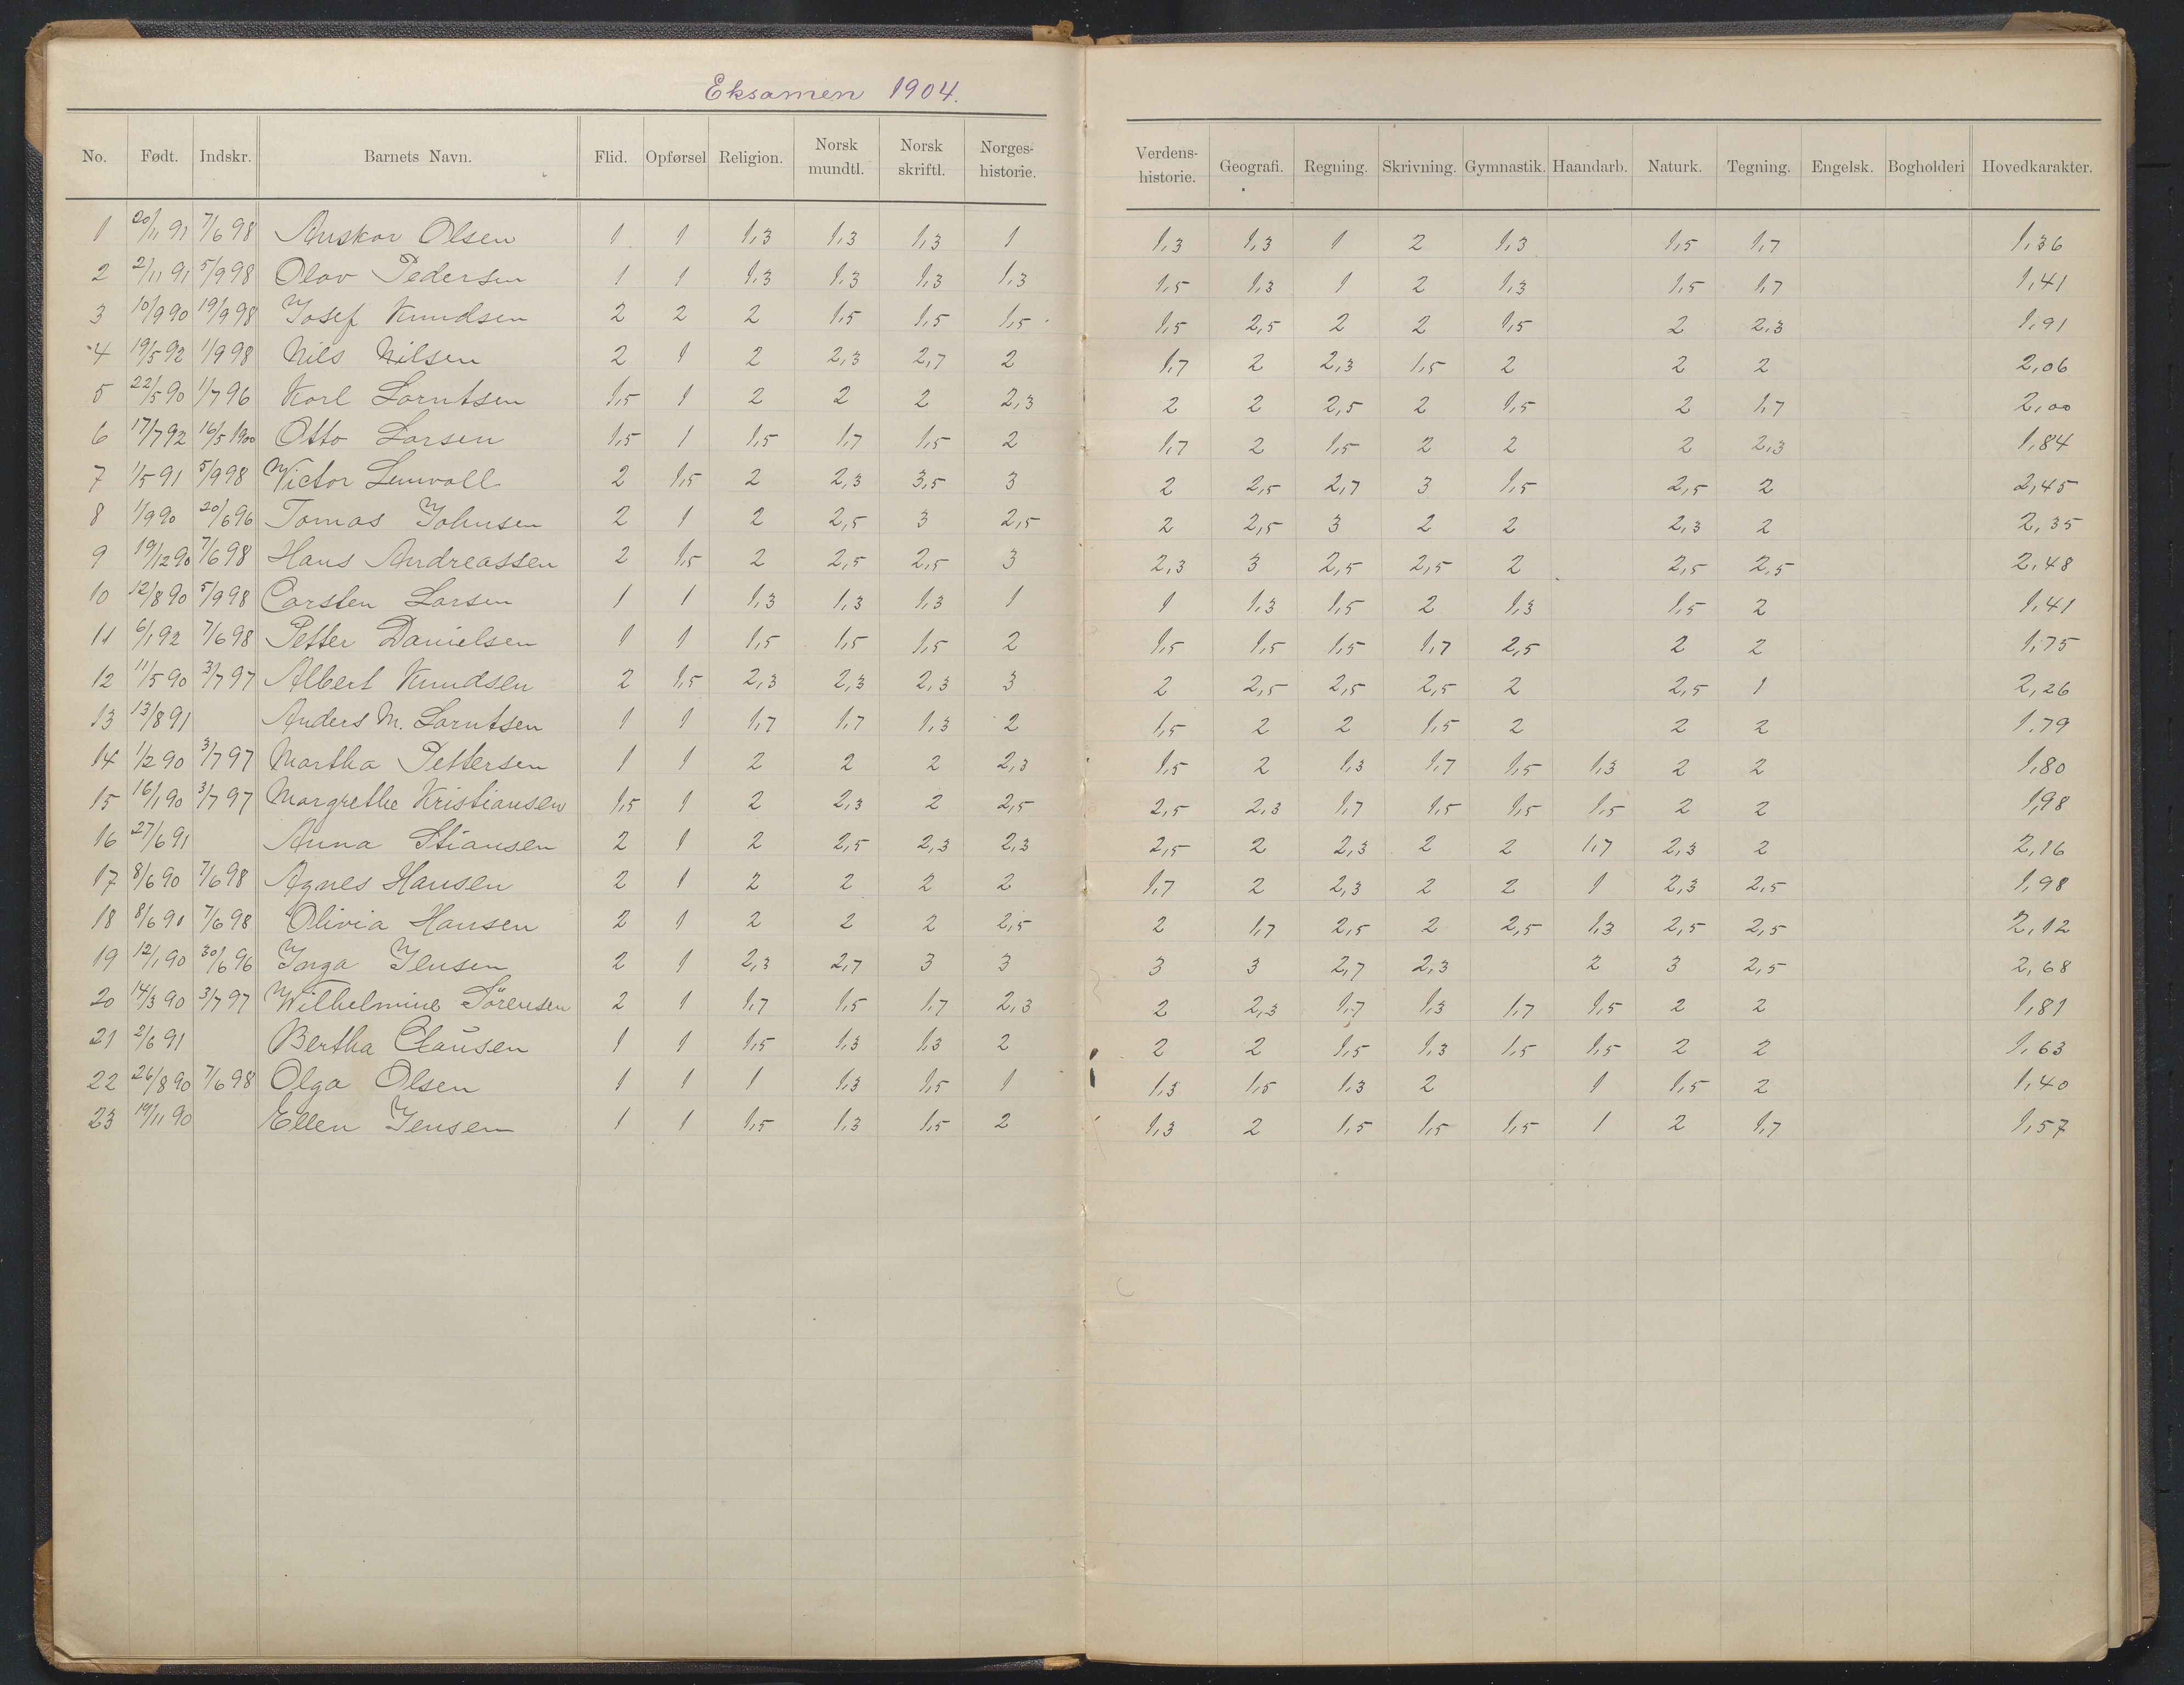 Eksamen 1904.
No. Født. Indskr. Barnets Navn. Flid. Opførsel Religion. Norsk mundtl. Norsk skriftl. Norges-historie. Verdens-historie. Geografi. Regning. Skrivning. Gymnastik. Haandarb. Naturk. Tegning. Engelsk. Bogholderi Hovedkarakter.
1 20/11 91 7/6 98 Anskar Olsen 1 1 1,3 1,3 1,3 1 1,3 1,3 1 2 1,3 1,5 1,7 1,36
2 2/11 91 5/9 98 Olav Pedersen 1 1 1,3 1,3 1,3 1,3 1,5 1,3 1 2 1,3 1,5 1,7 1,41
3 10/9 90 19/9 98 Josef Knudsen 2 2 2 1,5 1,5 1,5 1,5 2,5 2 2 1,5 2 2,3 1,91
4 19/5 92 1/9 98 Nils Nilsen 2 1 2 2,3 2,7 2 1,7 2 2,3 1,5 2 2 2 2,06
5 22/5 90 1/7 96 Karl Larntsen 1,5 1 2 2 2 2,3 2 2 2,5 2 1,5 2 1,7 2,00
6 17/7 92 16/5 1900 Otto Larsen 1,5 1 1,5 1,7 1,5 2 1,7 2 1,5 2 2 2 2,3 1,84
7 1/5 91 5/9 98 Victor Lenvall 2 1,5 2 2,3 3,5 3 2 2,5 2,7 3 1,5 2,5 2 2,45
8 1/9 90 20/6 96 Tomas Johnsen 2 1 2 2,5 3 2,5 2 2,5 3 2 2 2,3 2 2,35
9 19/12 90 7/6 98 Hans Andreassen 2 1,5 2 2,5 2,5 3 2,3 3 2,5 2,5 2 2,5 2,5 2,48
10 12/8 90 5/9 98 Carsten Larsen 1 1 1,3 1,3 1,3 1 1 1,3 1,5 2 1,3 1,5 2 1,41
11 6/1 92 7/6 98 Petter Danielsen 1 1 1,5 1,5 1,5 2 1,5 1,5 1,5 1,7 2,5 2 2 1,75
12 11/5 90 3/7 97 Albert Knudsen 2 1,5 2,3 2,3 2,3 3 2 2,5 2,5 2,5 2 2,5 1 2,26
13 13/8 91 Anders M. Larntsen 1 1 1,7 1,7 1,3 2 1,5 2 2 1,5 2 2 2 1.79
14 1/2 90 3/7 97 Martha Pettersen 1 1 2 2 2 2,3 1,5 2 1,3 1,7 1,5 1,3 2 2 1,80
15 16/1 90 3/7 97 Margrethe Kristiansen 1,5 1 2 2,3 2 2,5 2,5 2,3 1,7 1,5 1,5 1,5 2 2 1,98
16 27/6 91 Anna Stiansen 2 1 2 2,5 2,3 2,3 2,5 2 2,3 2 2 1,7 2,3 2 2,16
17 8/6 90 7/6 98 Agnes Hansen 2 1 2 2 2 2 1,7 2 2,3 2 2 1 2,3 2,5 1,98
18 8/6 91 7/6 98 Olivia Hansen 2 1 2 2 2 2,5 2 1,7 2,5 2 2,5 1,3 2,5 2,5 2,12
19 12/1 90 30/6 96 Inga Jensen 2 1 2,3 2,7 3 3 3 3 2,7 2,3 2 3 2,5 2,68
20 14/3 90 3/7 97 Wilhelmine Sörensen 2 1 1,7 1,5 1,7 2,3 2 2,3 1,7 1,3 1,7 1,5 2 2 1,81
21 2/6 91 Bertha Clausen 1 1 1,5 1,3 1,3 2 2 2 1,5 1,3 1,5 1,5 2 2 1,63
22 26/8 90 7/6 98 Olga Olsen 1 1 1 1,3 1,5 1 1,3 1,5 1,3 2 1 1,5 2 1,40
23 19/11 90 Ellen Jensen 1 1 1,5 1,3 1,5 2 1,3 2 1,5 1,5 1,5 1 2 1,7 1,57